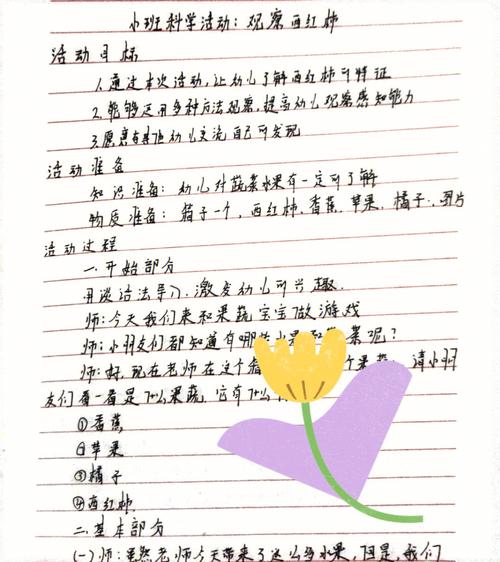 小班科学活动：观察西红柿
活动目标
1.通过本次活动,让幼儿了解西红柿的特征
2.能够运用多种方法观察,提高幼儿观察感知能力
3.愿意与其他幼儿交流自己的发现
活动准备
知识准备：幼儿对蔬菜水果有一定的了解
物质准备：箱子一个,西红柿、香蕉、苹果、橘子、图片
活动过程
一.开始部分
用谈话法导入,激发幼儿的兴趣.
师:今天我们来和果蔬宝宝做游戏
师:小朋友们都知道有哪些水果和蔬菜呢?
师:好,现在老师在这个箱 个果蔬, 请小朋
友们看一看是什么果蔬,它有什么
①香蕉
②苹果
③橘子
④西红柿
二.基本部分
(一)师:虽然老师今天带来了这么多水果,但是,我们